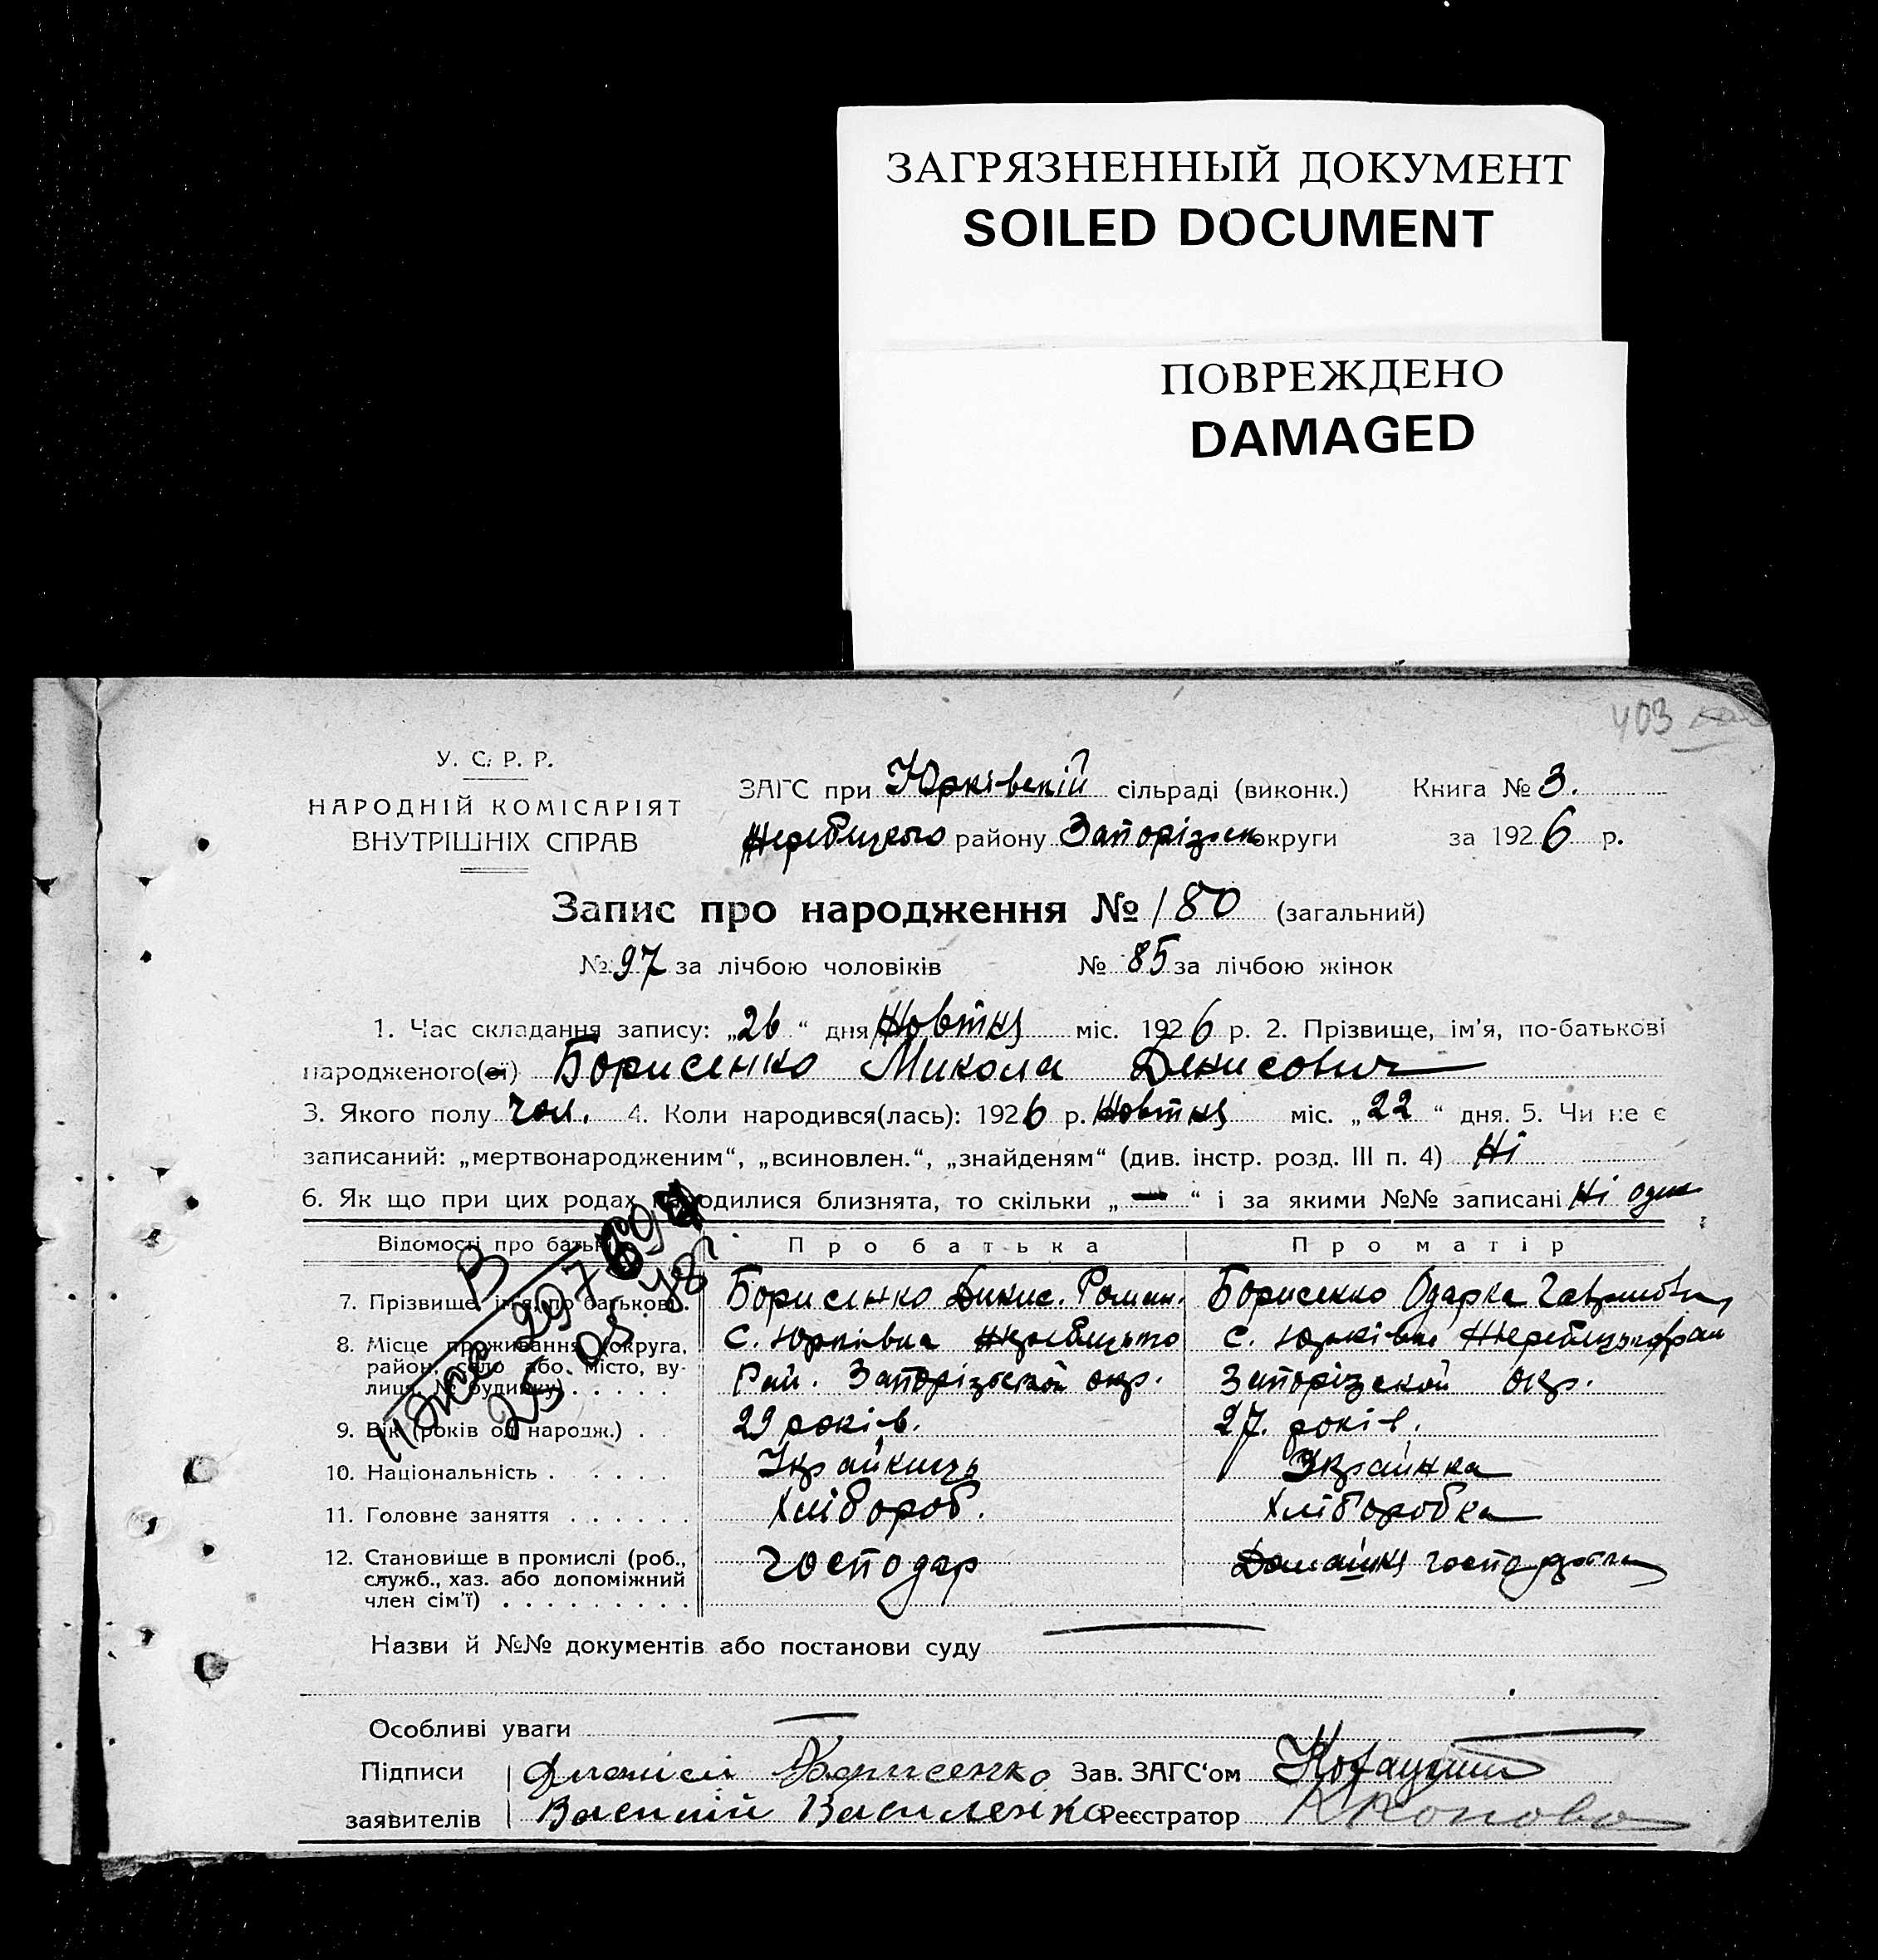 ЗАГРЯЗНЕННЫЙ ДОКУМЕНТ
SOILED DOCUMENT
ПОВРЕЖДЕНО
DAMAGED
403
У. С. Р. Р.
НАРОДНІЙ КОМІСАРІЯТ
ВНУТРІШНІХ СПРАВ
ЗАГС при Юрківській сільраді (виконк.) Книга № 3.
Жеребецького району Запорізьк округи за 1926 р.
Запис про народження № 180 (загальний)
№ 97 за лічбою чоловіків № 85 за лічбою жінок
1. Час складання запису: „26“ дня Жовтня міс. 1926 р. 2. Прізвище, ім’я, по-батькові
народженого(ої) Борисенко Микола Денисович
3. Якого полу чол. 4. Коли народився(лась): 1926 р. Жовтня міс. „22“ дня. 5. Чи не є
записаний: „мертвонародженим“, „всиновлен.“, „знайденям“ (див. інстр. розд. III п. 4) Ні
6. Як що при цих родах народилися близнята, то скільки „—“ і за якими №№ записані Ні
Відомості про батьків Про батька Про матір
7. Прізвище, ім’я, по батькові. Борисенко Денис. Роман. Борисенко Одарка Гаврилівна
8. Місце проживання (округа, район, село або місто, вулиця, № будинку) С. Юрківка Жеребецького с. Юрківка Жеребецького рай
Рай. Запорізської окр. Запорізской окр.
9. Вік (років од народж.) 29 років. 27. років.
10. Національність Українець Українка
11. Головне заняття Хлібороб. Хліборобка
12. Становище в промислі (роб., служб., хаз. або допоміжний член сім’ї) Господар Домашня господарка
Назви й №№ документів або постанови суду
Особливі уваги
Підписи Борисенко Зав. ЗАГС‘ом
заявителів Василий Василенко Реєстратор